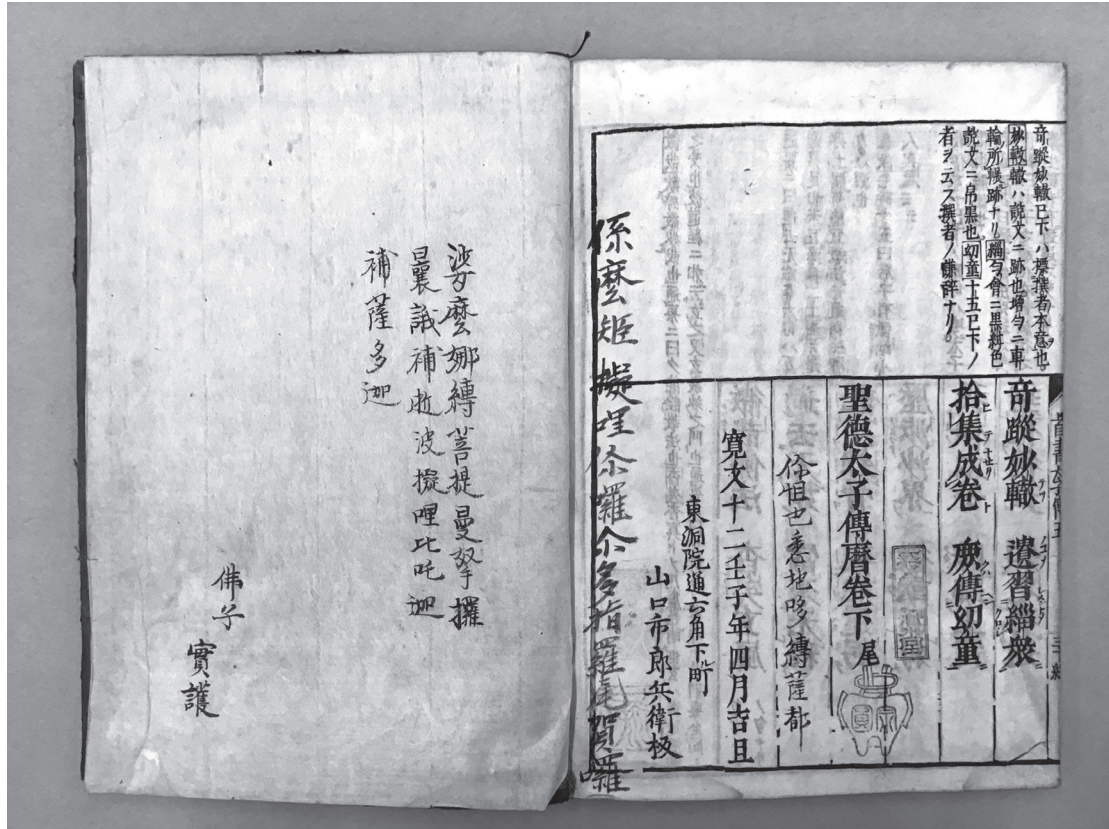 奇蹤妙轍已下ハ標撰者本意也
妙轍轍ハ說文ニ跡也増匀ニ車
輪所輾跡ナリ緇匀會ニ黒緋色
說文ニ帛黒也幼童十五已下ノ
者ヲ云ス撰者ノ謙辞ナリ。
奇蹤妙轍 遺習緇衆
拾集成卷 庶傳幼童
聖德太子傳曆卷下 尾
你怛也悉地哆縛薩都
寛文十二壬子年四月吉旦
東洞院通六角下ル町
山口市郎兵衛板
係麼姫擬哩你囉尒多指羅尾賀囉
娑麼娜縛菩提曼拏攞
曩誐補逝波擬哩比吒迦
補薩多迦
佛子
實護